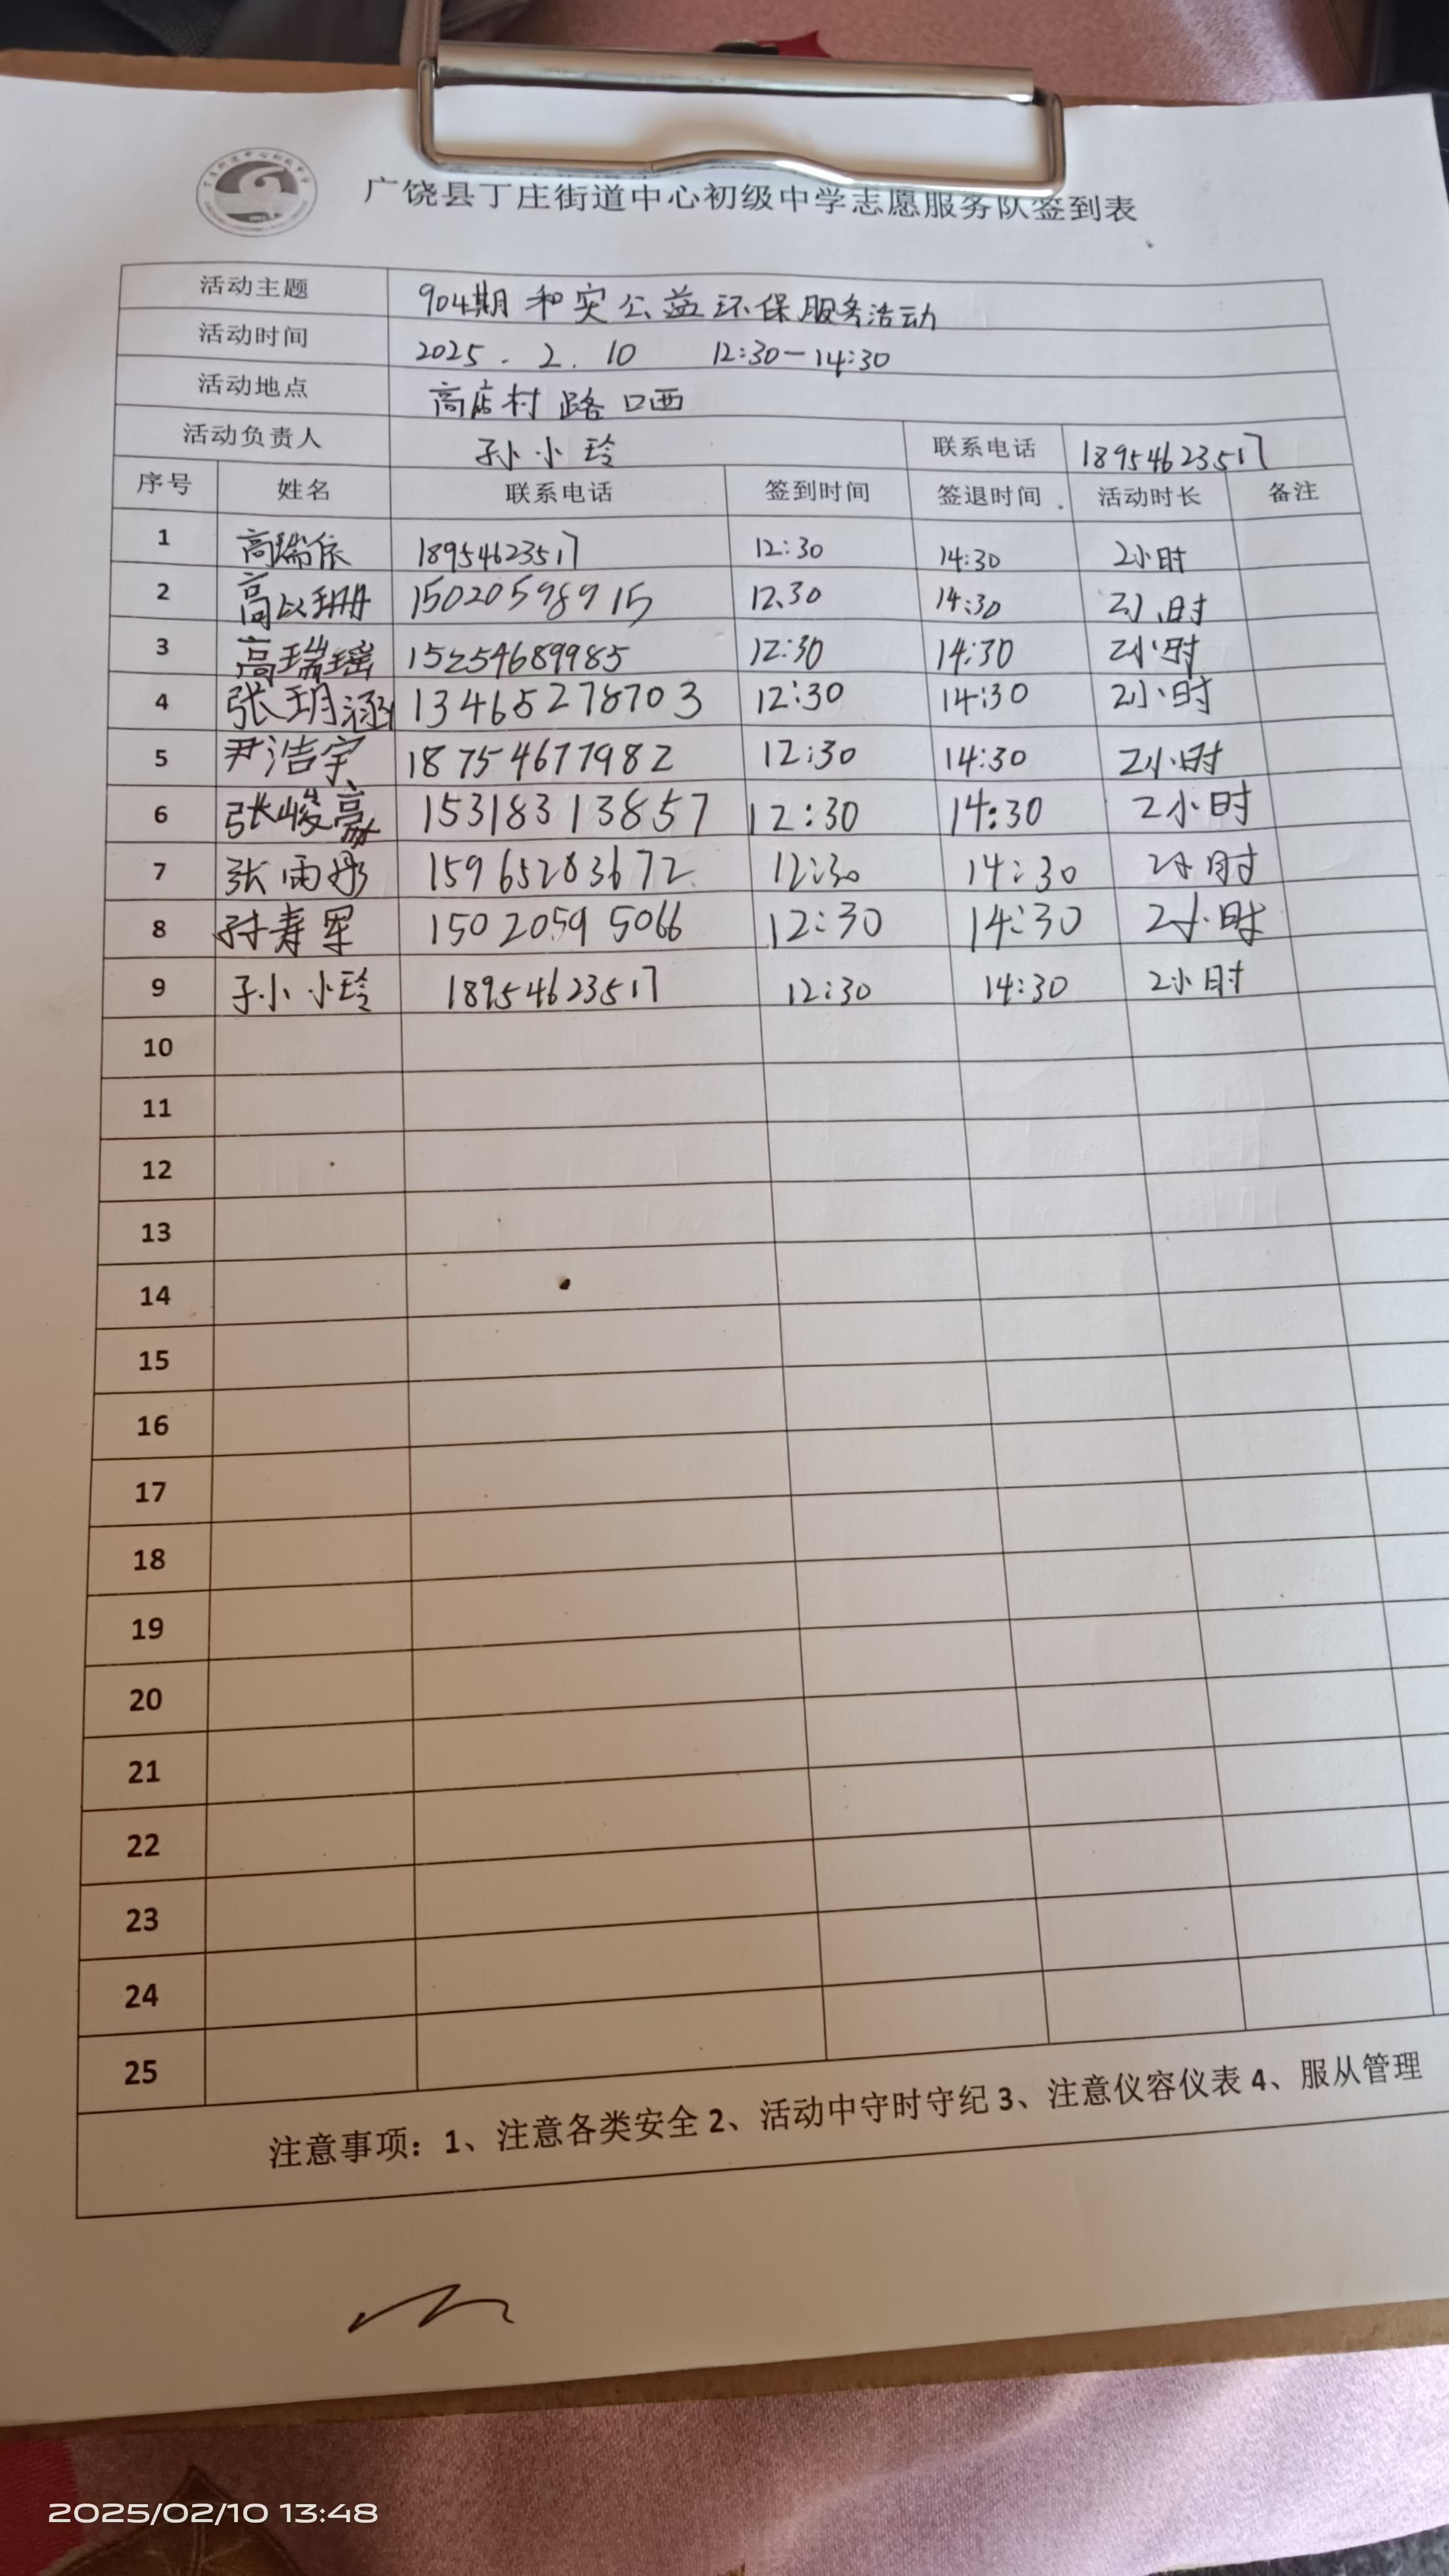 广饶县丁庄街道中心初级中学志愿服务队签到表
活动主题 904期和实公益环保服务活动
活动时间 2025.2.10 12:30-14:30
活动地点 高店村路口西
活动负责人 孙小玲 联系电话 18954623517
序号 姓名 联系电话 签到时间 签退时间 活动时长 备注
1 高瑞依 18954623517 12:30 14:30 2小时
2 高以珊 15020598915 12.30 14:30 2小时
3 高瑞瑶 15254689985 12:30 14:30 2小时
4 张玥涵 13465278703 12:30 14:30 2小时
5 尹浩宇 18754677982 12:30 14:30 2小时
6 张峻豪 15318313857 12:30 14:30 2小时
7 张雨彤 15965283672 12:30 14:30 2小时
8 孙寿军 15020595066 12:30 14:30 2小时
9 孙小玲 18954623517 12:30 14:30 2小时
10
11
12
13
14
15
16
17
18
19
20
21
22
23
24
25
注意事项：1、注意各类安全 2、活动中守时守纪 3、注意仪容仪表 4、服从管理
2025/02/10 13:48